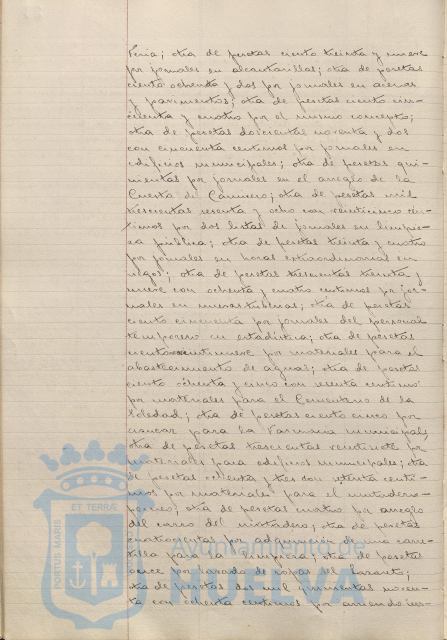 Feria; otra de pesetas ciento treinta y nueve
por jornales en alcantarillas; otra de pesetas
ciento ochenta y dos por jornales en aceras
y pavimentos; otra de pesetas ciento cin-
cuenta y cuatro por el mismo concepto;
otra de pesetas doscientas noventa y dos
con cincuenta centimos por jornales en
edificios municipales; otra de pesetas qui-
nientas por jornales en el arreglo de la
Cuesta de ; otra de pesetas mil
trescientas sesenta y ocho con veinticinco cén-
timos por dos listas de jornales en limpie-
za pública; otra de pesetas treinta y cuatro
por jornales en horas extraordinarias en
riegos; otra de pesetas trescientas treinta y
nueve con ochenta y cuatro centimos por jor-
nales en nuevas tuberias; otra de pesetas
ciento cincuenta por jornales del personal
temporero en estadistica; otra de pesetas
ciento veintinueve por materiales para el
abastecimiento de aguas; otra de pesetas
ciento ochenta y cinco con setenta centimos
por materiales para el Cementerio de la
Soledad; otra de pesetas ciento cinco por
azucar para la Farmacia municipal,
otra de pesetas trescientas veintisiete por
materiales para edificios municipales; otra
de pesetas ochenta y tres con setenta centi-
mos por materiales para el matadero
; otra de pesetas cuatro por arreglo
del carro del matadero; otra de pesetas
cuatrocientas por adquisicion de una carre-
tilla para la limpieza; otra de pesetas
once por lavado de ropas del Lazareto;
otra de pesetas dos mil quinientas noven-
ta con ochenta centimos por arriendo
ET TERRÆ
PORTUS MARIS
Ayuntamiento de
HUELVA